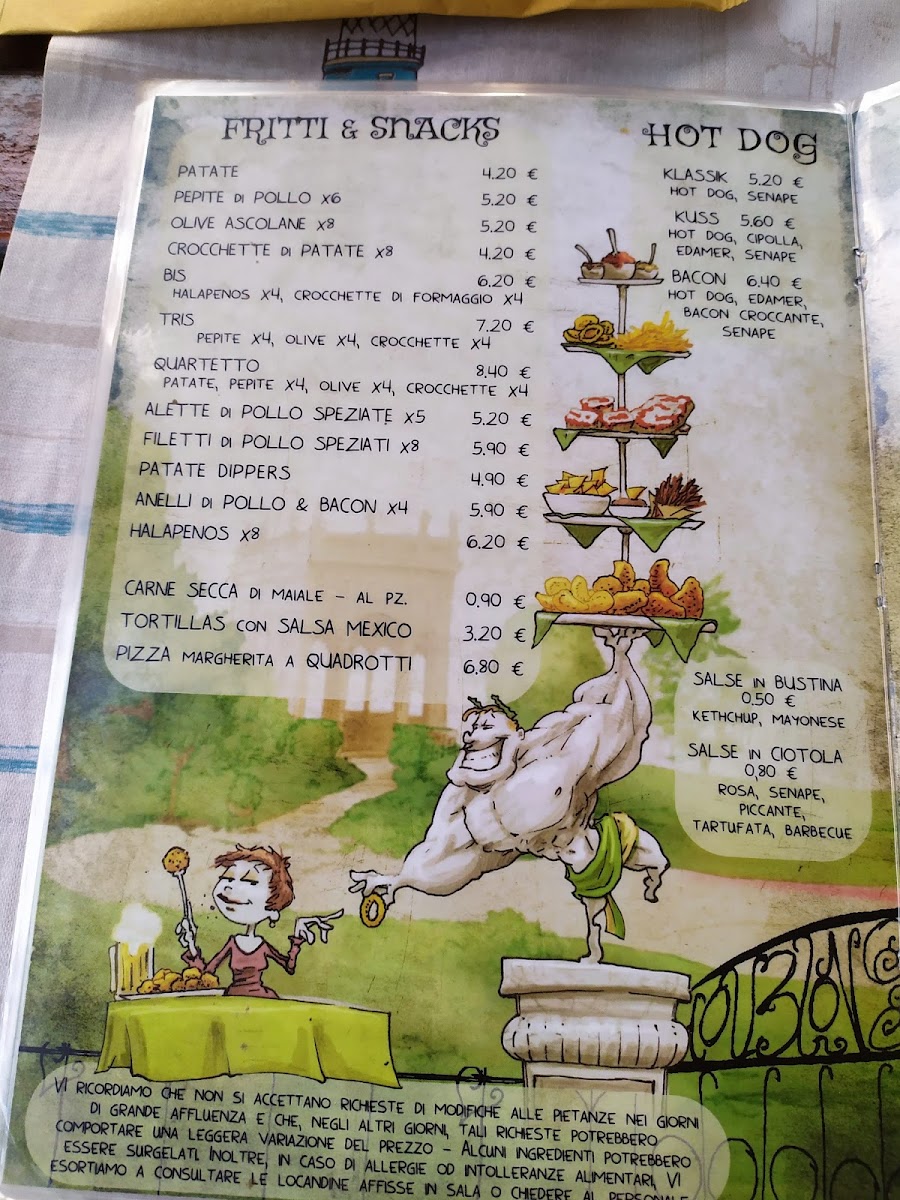 FRITTI & SNACKS
PATATE 4.20 €
PEPITE di POLLO x6 5,20 €
OLIVE ASCOLANE x8 5.20 €
CROCCHETTE di PATATE x8 4.20 €
BIS 6,20 €
HALAPENOS x4, CROCCHETTE DI FORMAGGIO x4
TRIS 7.20 €
PEPITE x4, OLIVE x4, CROCCHETTE x4
QUARTETTO 8,40 €
PATATE, PEPITE x4, OLIVE x4, CROCCHETTE x4
ALETTE di POLLO SPEZIATE x5 5,20 €
FILETTI di POLLO SPEZIATI x8 5,90 €
PATATE DIPPERS 4,90 €
ANELLI di POLLO & BACON x4 5,90 €
HALAPENOS x8 6,20 €
CARNE SECCA DI MAIALE - AL PZ. 0,90 €
TORTILLAS con SALSA MEXICO 3.20 €
PIZZA MARGHERITA A QUADROTTI 6,80 €
HOT DOG
KLASSIK 5,20 €
HOT DOG, SENAPE
KUSS 5,60 €
HOT DOG, CIPOLLA,
EDAMER, SENAPE
BACON 6,40 €
HOT DOG, EDAMER,
BACON CROCCANTE,
SENAPE
SALSE in BUSTINA
0,50 €
KETHCHUP, MAYONESE
SALSE in CIOTOLA
0,80 €
ROSA, SENAPE,
PICCANTE,
TARTUFATA, BARBECUE
VI RICORDIAMO CHE NON SI ACCETTANO RICHIESTE DI MODIFICHE ALLE PIETANZE NEI GIORNI
DI GRANDE AFFLUENZA E CHE, NEGLI ALTRI GIORNI, TALI RICHIESTE POTREBBERO
COMPORTARE UNA LEGGERA VARIAZIONE DEL PREZZO - ALCUNI INGREDIENTI POTREBBERO
ESSERE SURGELATI INOLTRE, IN CASO DI ALLERGIE OD INTOLLERANZE ALIMENTARI, VI
ESORTIAMO A CONSULTARE LE LOCANDINE AFFISSE IN SALA O CHIEDERE AL PERSONALE